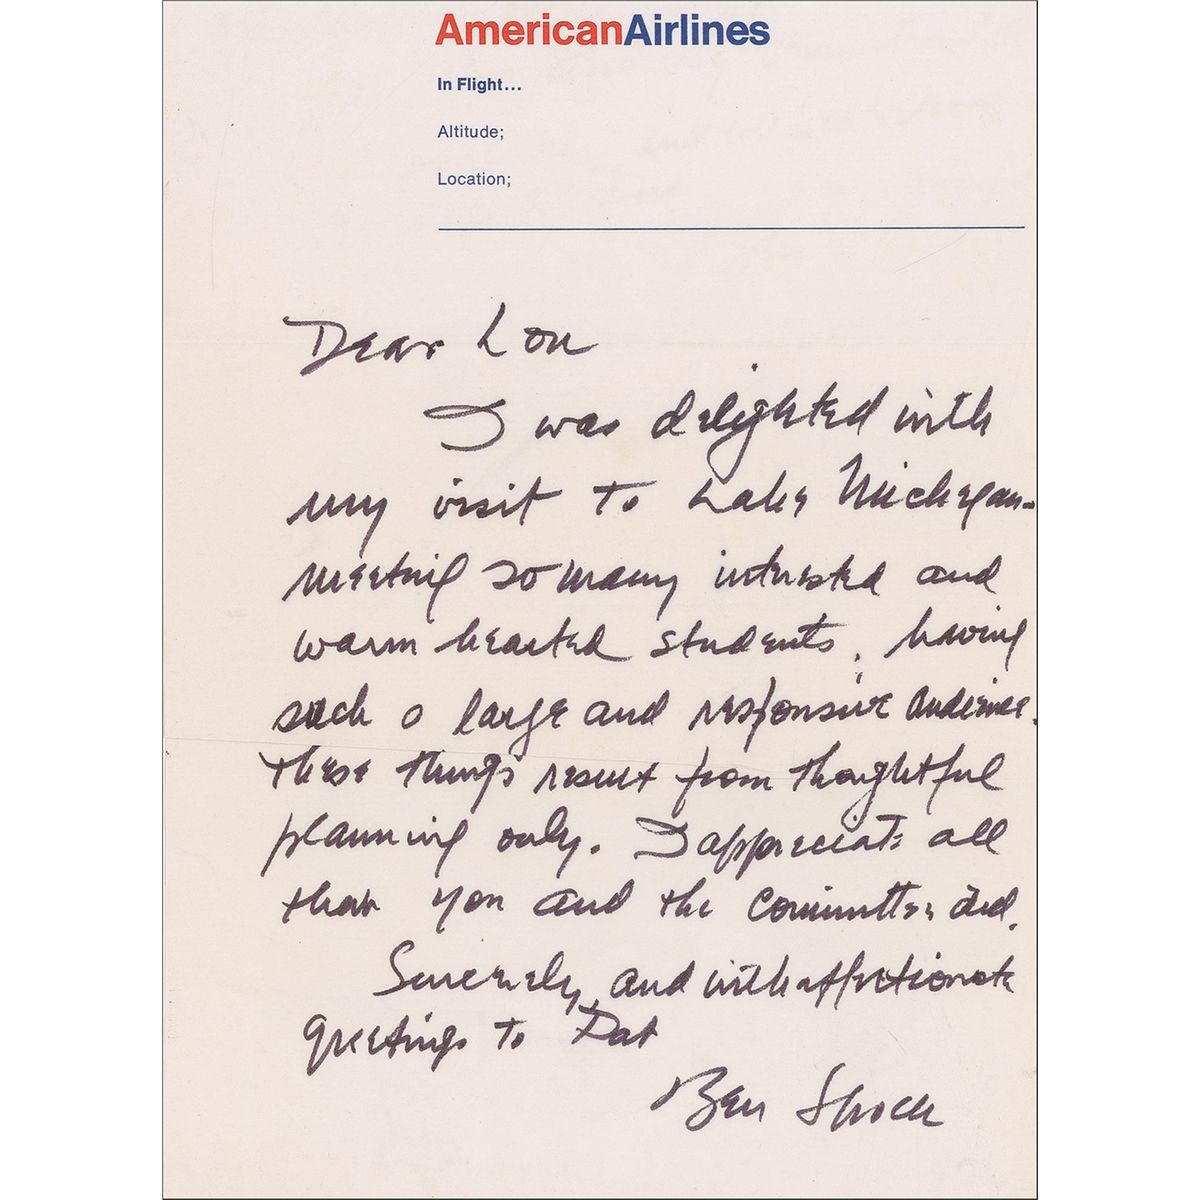 AmericanAirlines
In Flight...
Altitude;
Location;
Dear Lou
I was delighted with
my visit to Lake Michigan-
meeting so many interested and
warm hearted students, having
such a large and responsive audience.
These things result from thoughtful
planning only. I appreciate all
that you and the committee did.
Sincerely, and with affectionate
greetings to Pat
Ben Spock